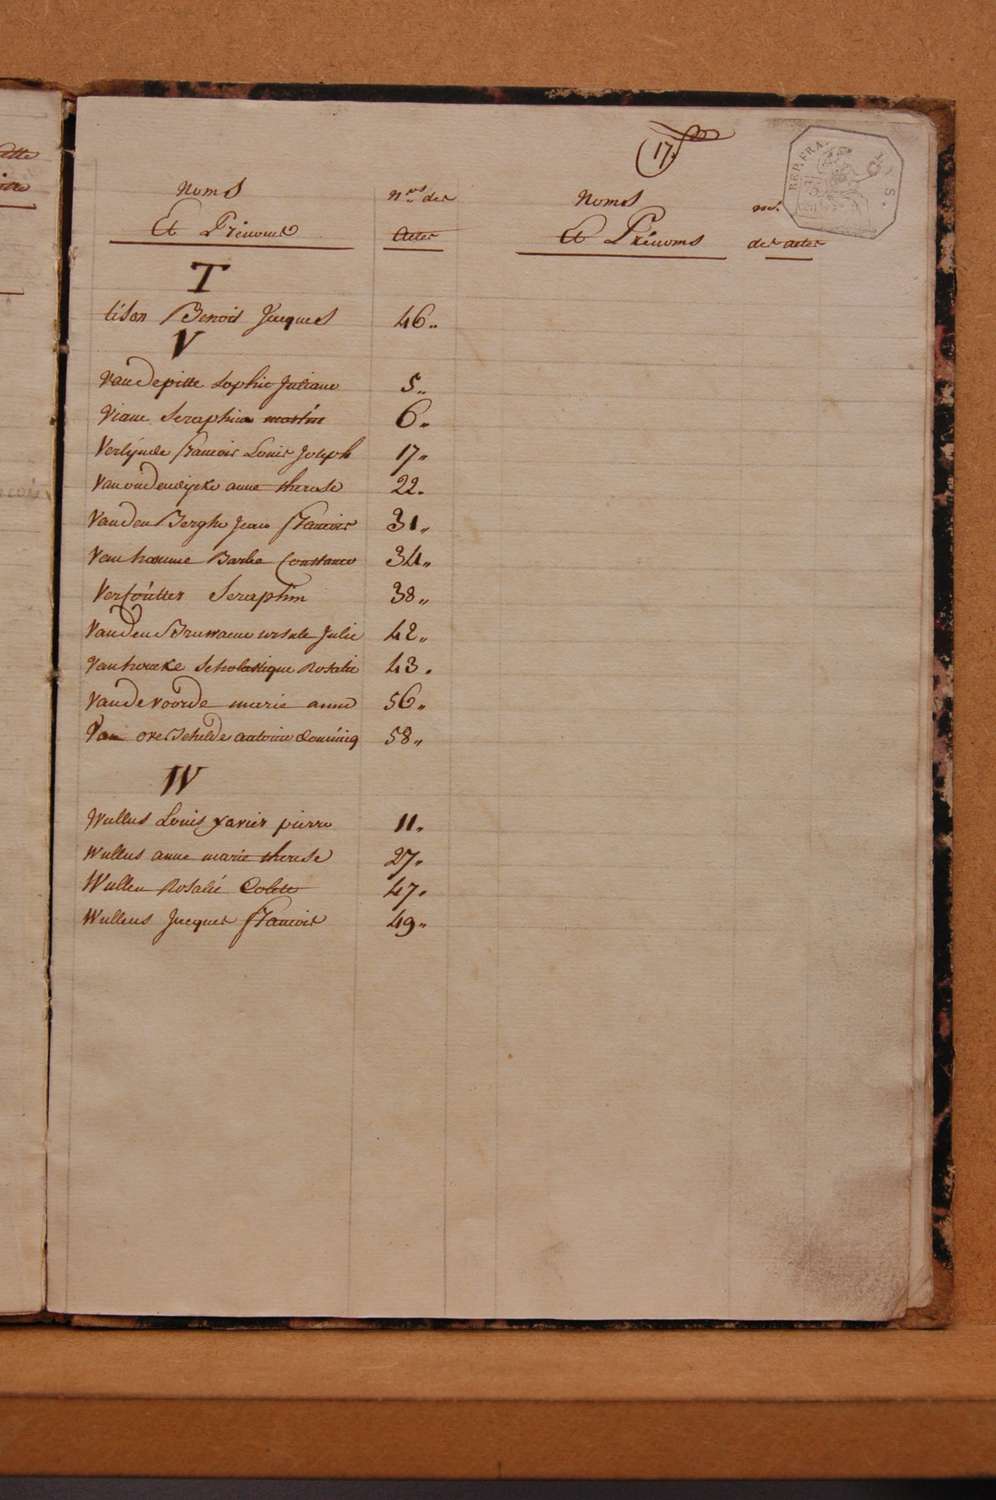 17.
REP. FRA.
Noms
Et Prénoms
N.ros des
Actes
Noms
Et Prénoms
nos.
des actes
T
tison Benoit Jacques 46..
V
Vandepitte Sophie Juliane 5..
Viane Seraphin martin 6..
Verlynde francois Louis Joseph 17..
Vanoudendycke anne therese 22.
Vanden Berghe Jean francois 31..
Vanhamme Barbe Constance 34..
Vercoutter Seraphin 38..
Vanden Bruwaene ursule Julie 42..
Vanhoucke Scholastique Rosalie 43.
Vandevoorde marie anne 56..
Van overschelde antoine dominiq 58..
W
Wullus Louis xavier pierre 11.
Wullus anne marie therese 27..
Wullen Rosalie Colette 47.
Wullens Jacques francois 49..